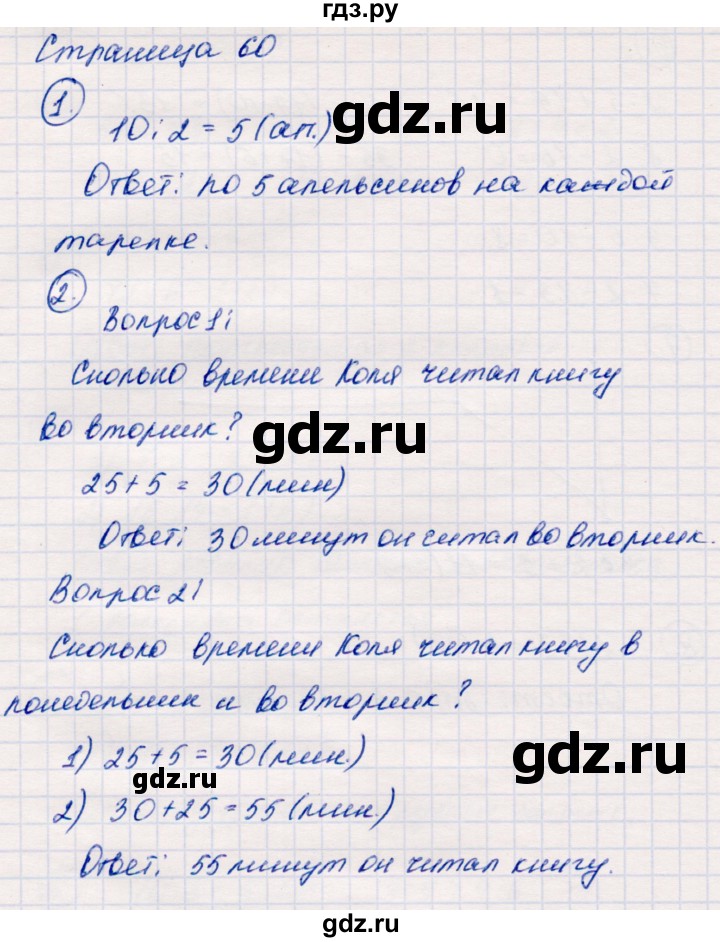 гдз.ру
Страница 60
1.
10:2=5(ап.)
gdz.ru
Ответ: по 5 апельсинов на каждой
тарелке.
2.
Вопрос 1:
Сколько времени Коля читал книгу
во вторник?
gdz.ru
25+5=30(мин)
Ответ: 30 минут он читал во вторник.
Вопрос 2:
Сколько времени Коля читал книгу в
понедельник и во вторник?
1) 25+5=30(мин.)
gdz.ru
gdz.ru
2) 30+25=55(мин.)
Ответ: 55 минут он читал книгу.
gdz.ru